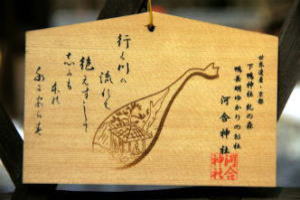 世界遺産・京都
下鴨神社 糺の森
鴨長明ゆかりのお社
河合神社
河合
神社
行く川の
流れは
絶えずして
志かも
本の
水にあらず